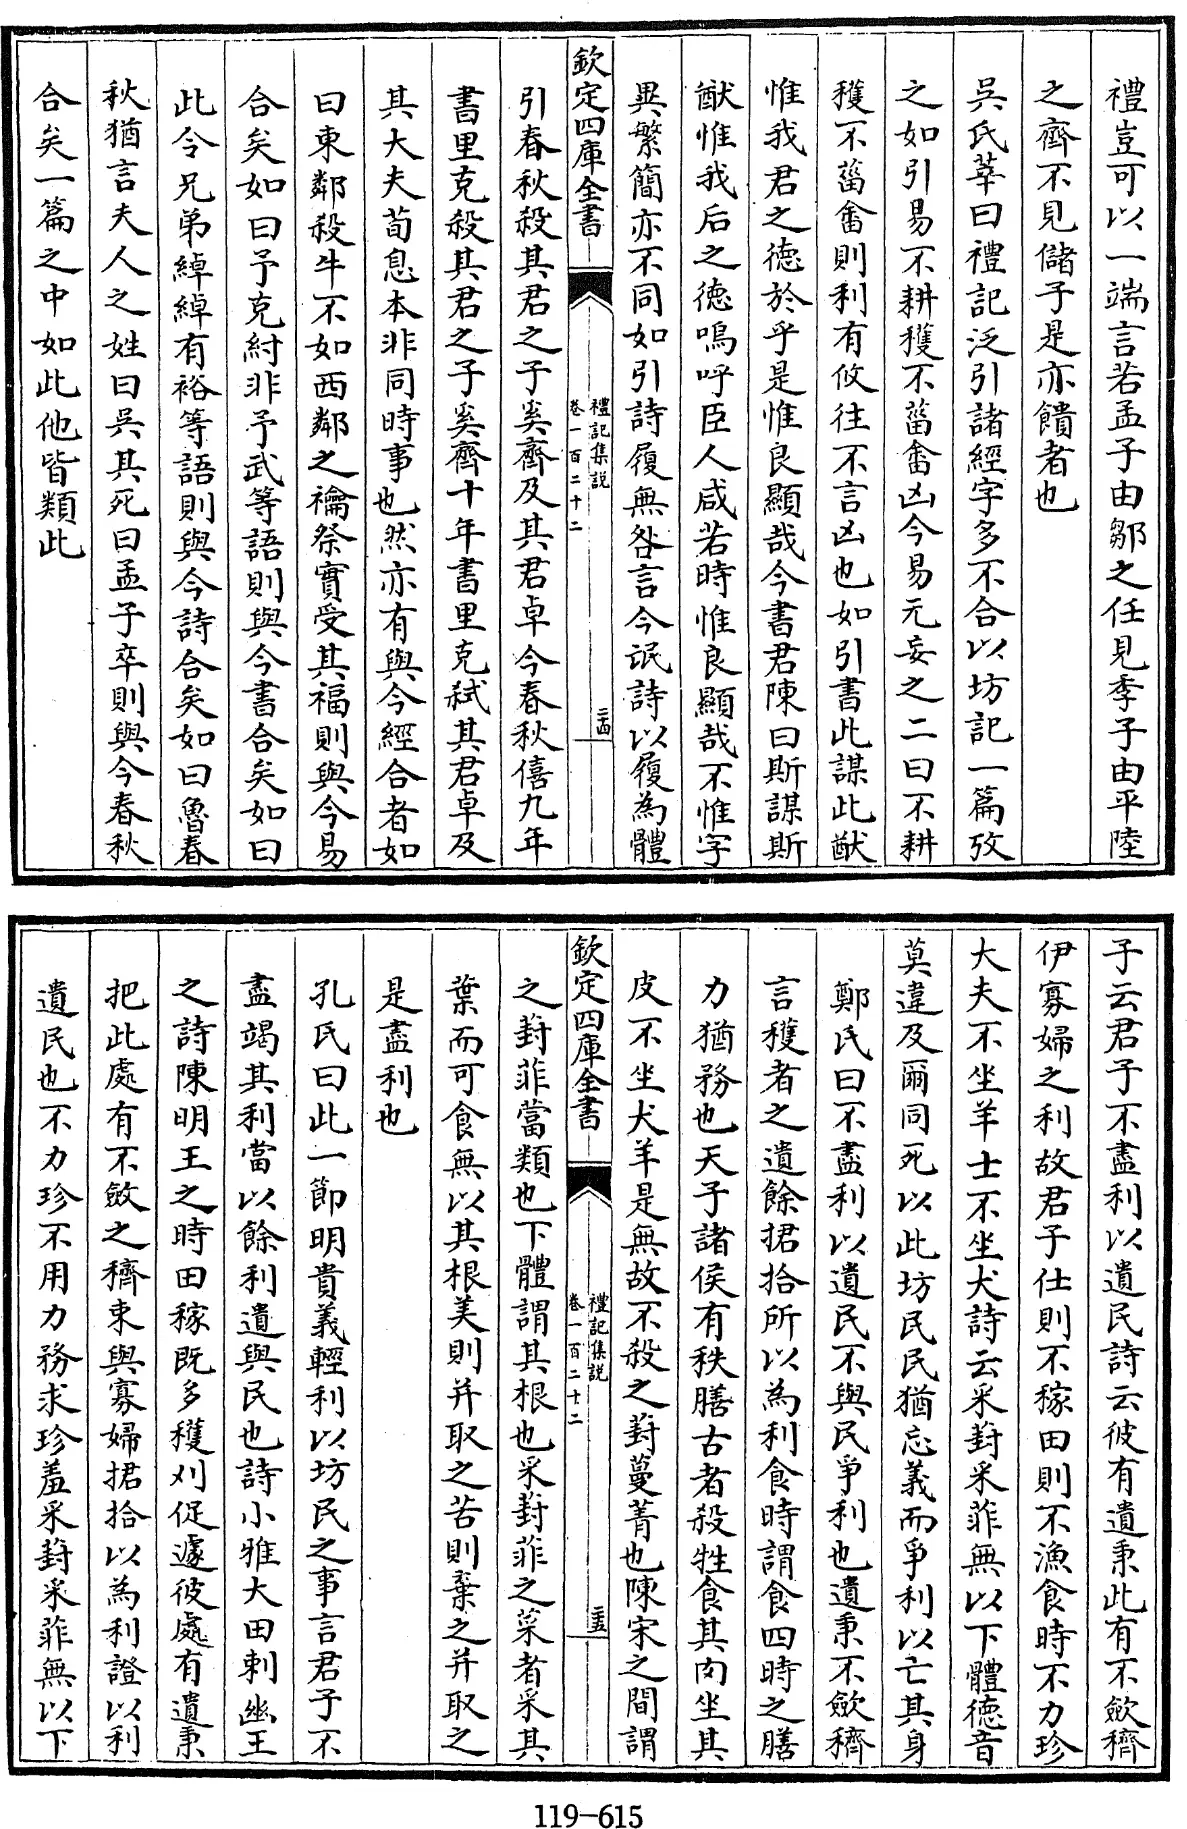 禮豈可以一端言若孟子由鄒之任見季子由平陸
之齊不見儲子是亦饋者也
吳氏莘曰禮記泛引諸經字多不合以坊記一篇攷
之如引易不耕穫不菑畬凶今易元妄之二曰不耕
穫不菑畬則利有攸往不言凶也如引書此謀此猷
惟我君之德於乎是惟良顯哉今書君陳曰斯謀斯
猷惟我后之德嗚呼臣人咸若時惟良顯哉不惟字
異繁簡亦不同如引詩履無咎言今氓詩以履為體
欽定四庫全書
禮記集説
卷一百二十二
二十四
引春秋殺其君之子奚齊及其君卓今春秋僖九年
書里克殺其君之子奚齊十年書里克弑其君卓及
其大夫荀息本非同時事也然亦有與今經合者如
曰東鄰殺牛不如西鄰之禴祭實受其福則與今易
合矣如曰予克紂非予武等語則與今書合矣如曰
此令兄弟綽綽有裕等語則與今詩合矣如曰魯春
秋猶言夫人之姓曰吳其死曰孟子卒則與今春秋
合矣一篇之中如此他皆類此
子云君子不盡利以遺民詩云彼有遺秉此有不斂穧
伊寡婦之利故君子仕則不稼田則不漁食時不力珍
大夫不坐羊士不坐犬詩云采葑采菲無以下體德音
莫違及爾同死以此坊民民猶忘義而爭利以亡其身
鄭氏曰不盡利以遺民不與民爭利也遺秉不斂穧
言穫者之遺餘捃拾所以為利食時謂食四時之膳
力猶務也天子諸侯有秩膳古者殺牲食其肉坐其
皮不坐犬羊是無故不殺之葑蔓菁也陳宋之間謂
欽定四庫全書
禮記集説
卷一百二十二
二十五
之葑菲葍類也下體謂其根也采葑菲之菜者采其
葉而可食無以其根美則并取之苦則棄之并取之
是盡利也
孔氏曰此一節明貴義輕利以坊民之事言君子不
盡竭其利當以餘利遺與民也詩小雅大田刺幽王
之詩陳明王之時田稼既多穫刈促遽彼處有遺秉
把此處有不斂之穧束與寡婦捃拾以為利證以利
遺民也不力珍不用力務求珍羞采葑采菲無以下
119-615